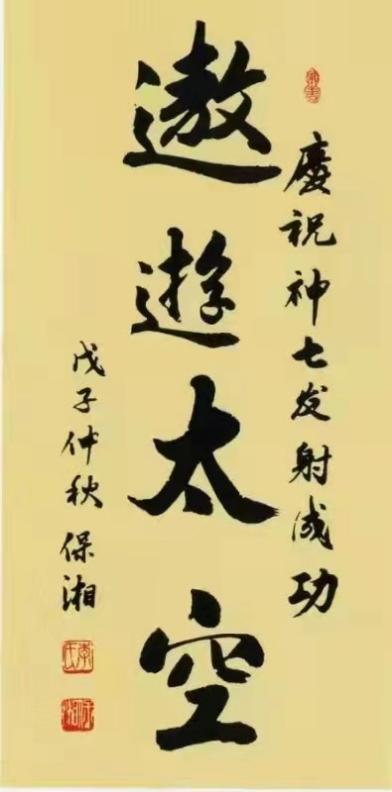 慶祝神七发射成功
遨遊太空
戊子仲秋保湘